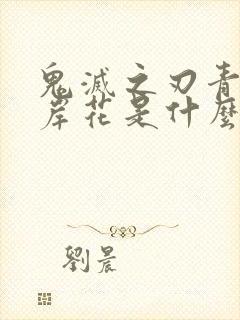 鬼滅之刃青
岸花是什麼
劉晨